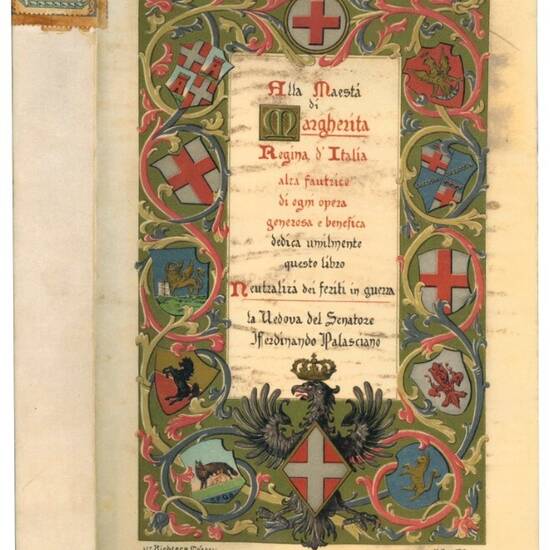 Alla Maestá
di
Margherita
Regina d'Italia
alta fautrice
di ogni opera
generosa e benefica
dedica umilmente
questo libro
Neutralitá dei feriti in guerra
la Vedova del Senatore
Ferdinando Palasciano
SPQR